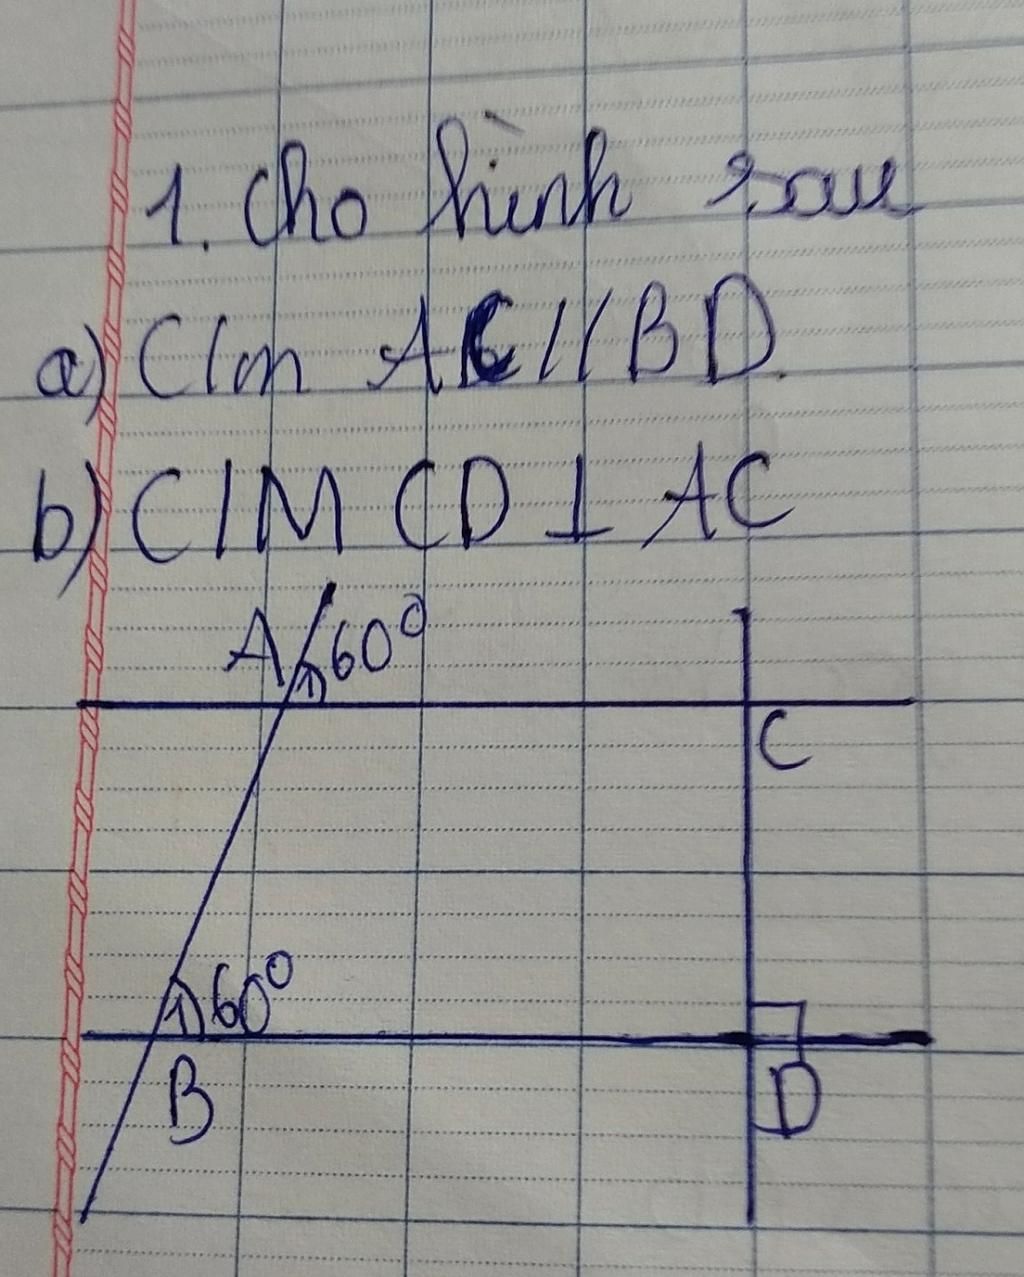 1. Cho hình sau
a) C/m AC // BD.
b) C/M CD ⊥ AC
A 1 60⁰
C
1 60⁰
B
D